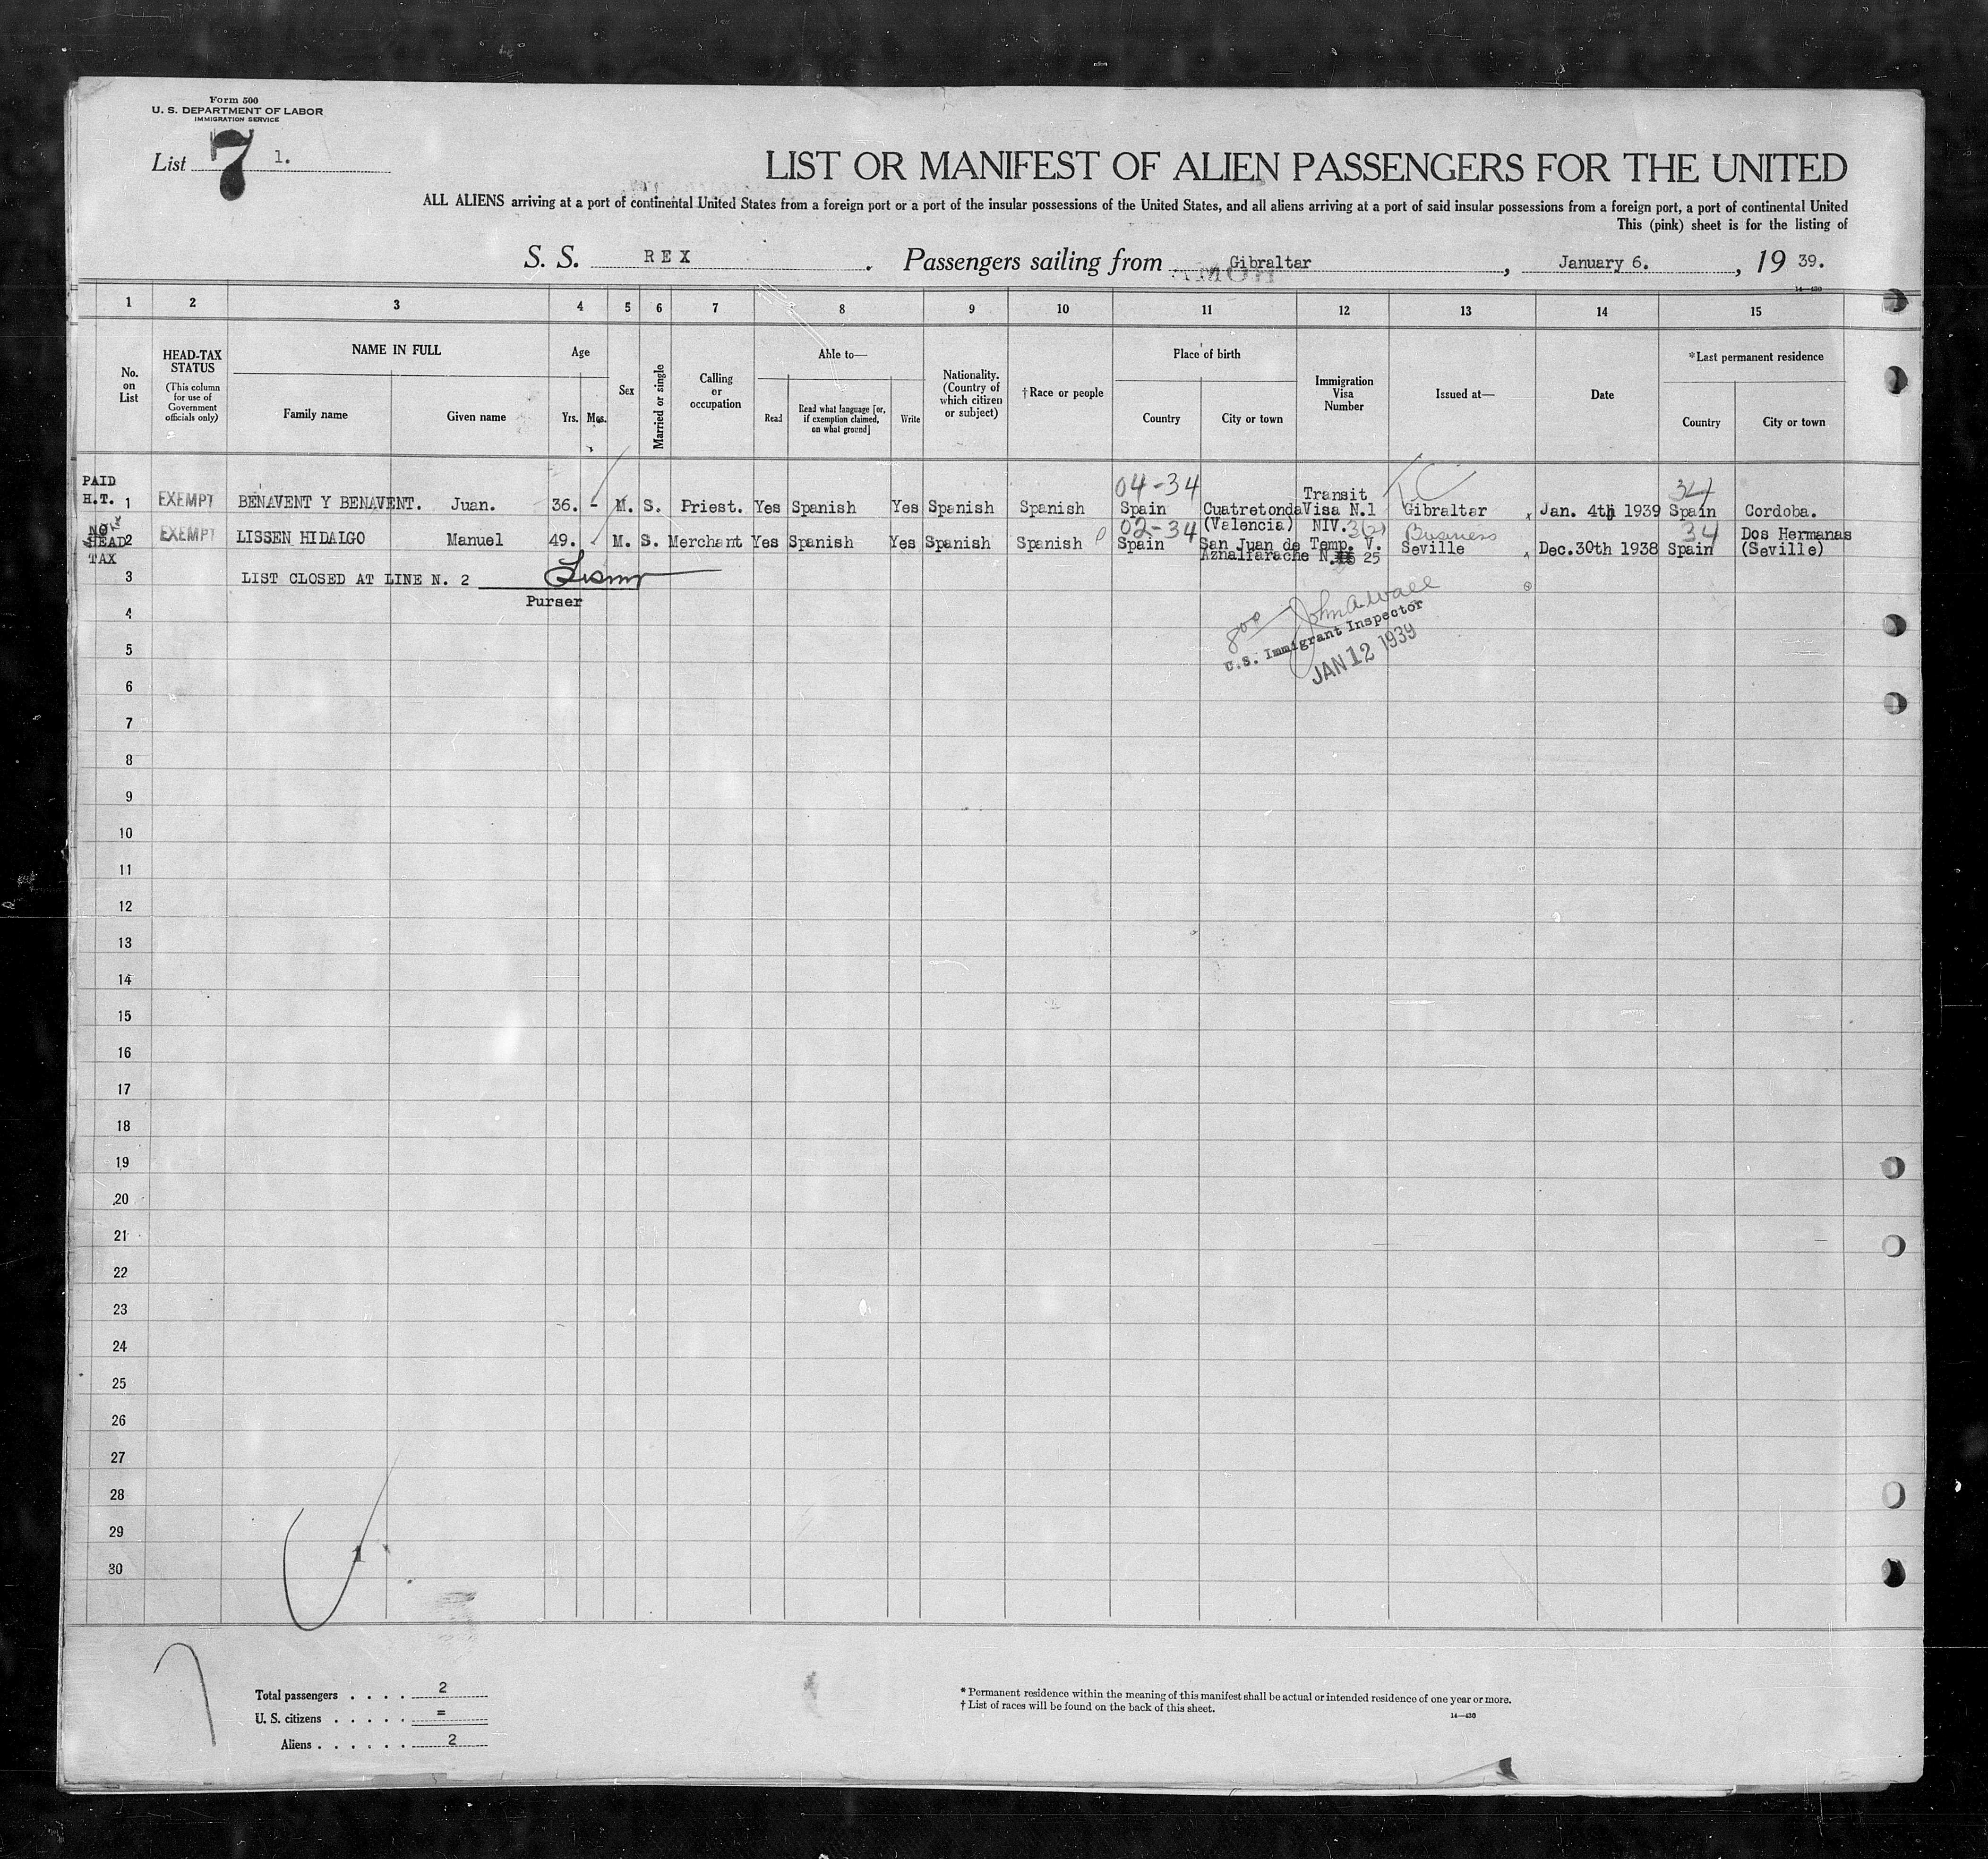 Form 500
U. S. DEPARTMENT OF LABOR
IMMIGRATION SERVICE
List 7 1.
LIST OR MANIFEST OF ALIEN PASSENGERS FOR THE UNITED
ALL ALIENS arriving at a port of continental United States from a foreign port or a port of the insular possessions of the United States, and all aliens arriving at a port of said insular possessions from a foreign port, a port of continental United
This (pink) sheet is for the listing of
S. S. REX. Passengers sailing from Gibraltar, January 6., 19 39.
14—430
1 2 3 4 5 6 7 8 9 10 11 12 13 14 15
No. on List
HEAD-TAX STATUS
(This column for use of Government officials only)
NAME IN FULL
Family name Given name
Age
Yrs. Mos.
Sex
Married or single
Calling or occupation
Able to—
Read
Read what language [or, if exemption claimed, on what ground]
Write
Nationality. (Country of which citizen or subject)
†Race or people
Place of birth
Country City or town
Immigration Visa Number
Issued at—
Date
*Last permanent residence
Country City or town
PAID 04-34 Transit TC 34
H.T. 1 EXEMPT BENAVENT Y BENAVENT. Juan. 36. - M. S. Priest. Yes Spanish Yes Spanish Spanish Spain Cuatretonda Visa N.1 Gibraltar Jan. 4th 1939 Spain Cordoba.
(Valencia) NIV. 3(2) Business
NO HEAD TAX 2 EXEMPT LISSEN HIDALGO Manuel 49. M. S. Merchant Yes Spanish Yes Spanish Spanish 02-34 Spain San Juan de Aznalfarache Temp. V. N. 25 Seville Dec.30th 1938 34 Spain Dos Hermanas (Seville)
3 LIST CLOSED AT LINE N. 2
Purser
800 John A. Wall
U.S. Immigrant Inspector
JAN 12 1939
4
5
6
7
8
9
10
11
12
13
14
15
16
17
18
19
20
21
22
23
24
25
26
27
28
29
1
30
7
Total passengers . . . . 2
U. S. citizens . . . . . =
Aliens . . . . . . 2
* Permanent residence within the meaning of this manifest shall be actual or intended residence of one year or more.
† List of races will be found on the back of this sheet.
14—430